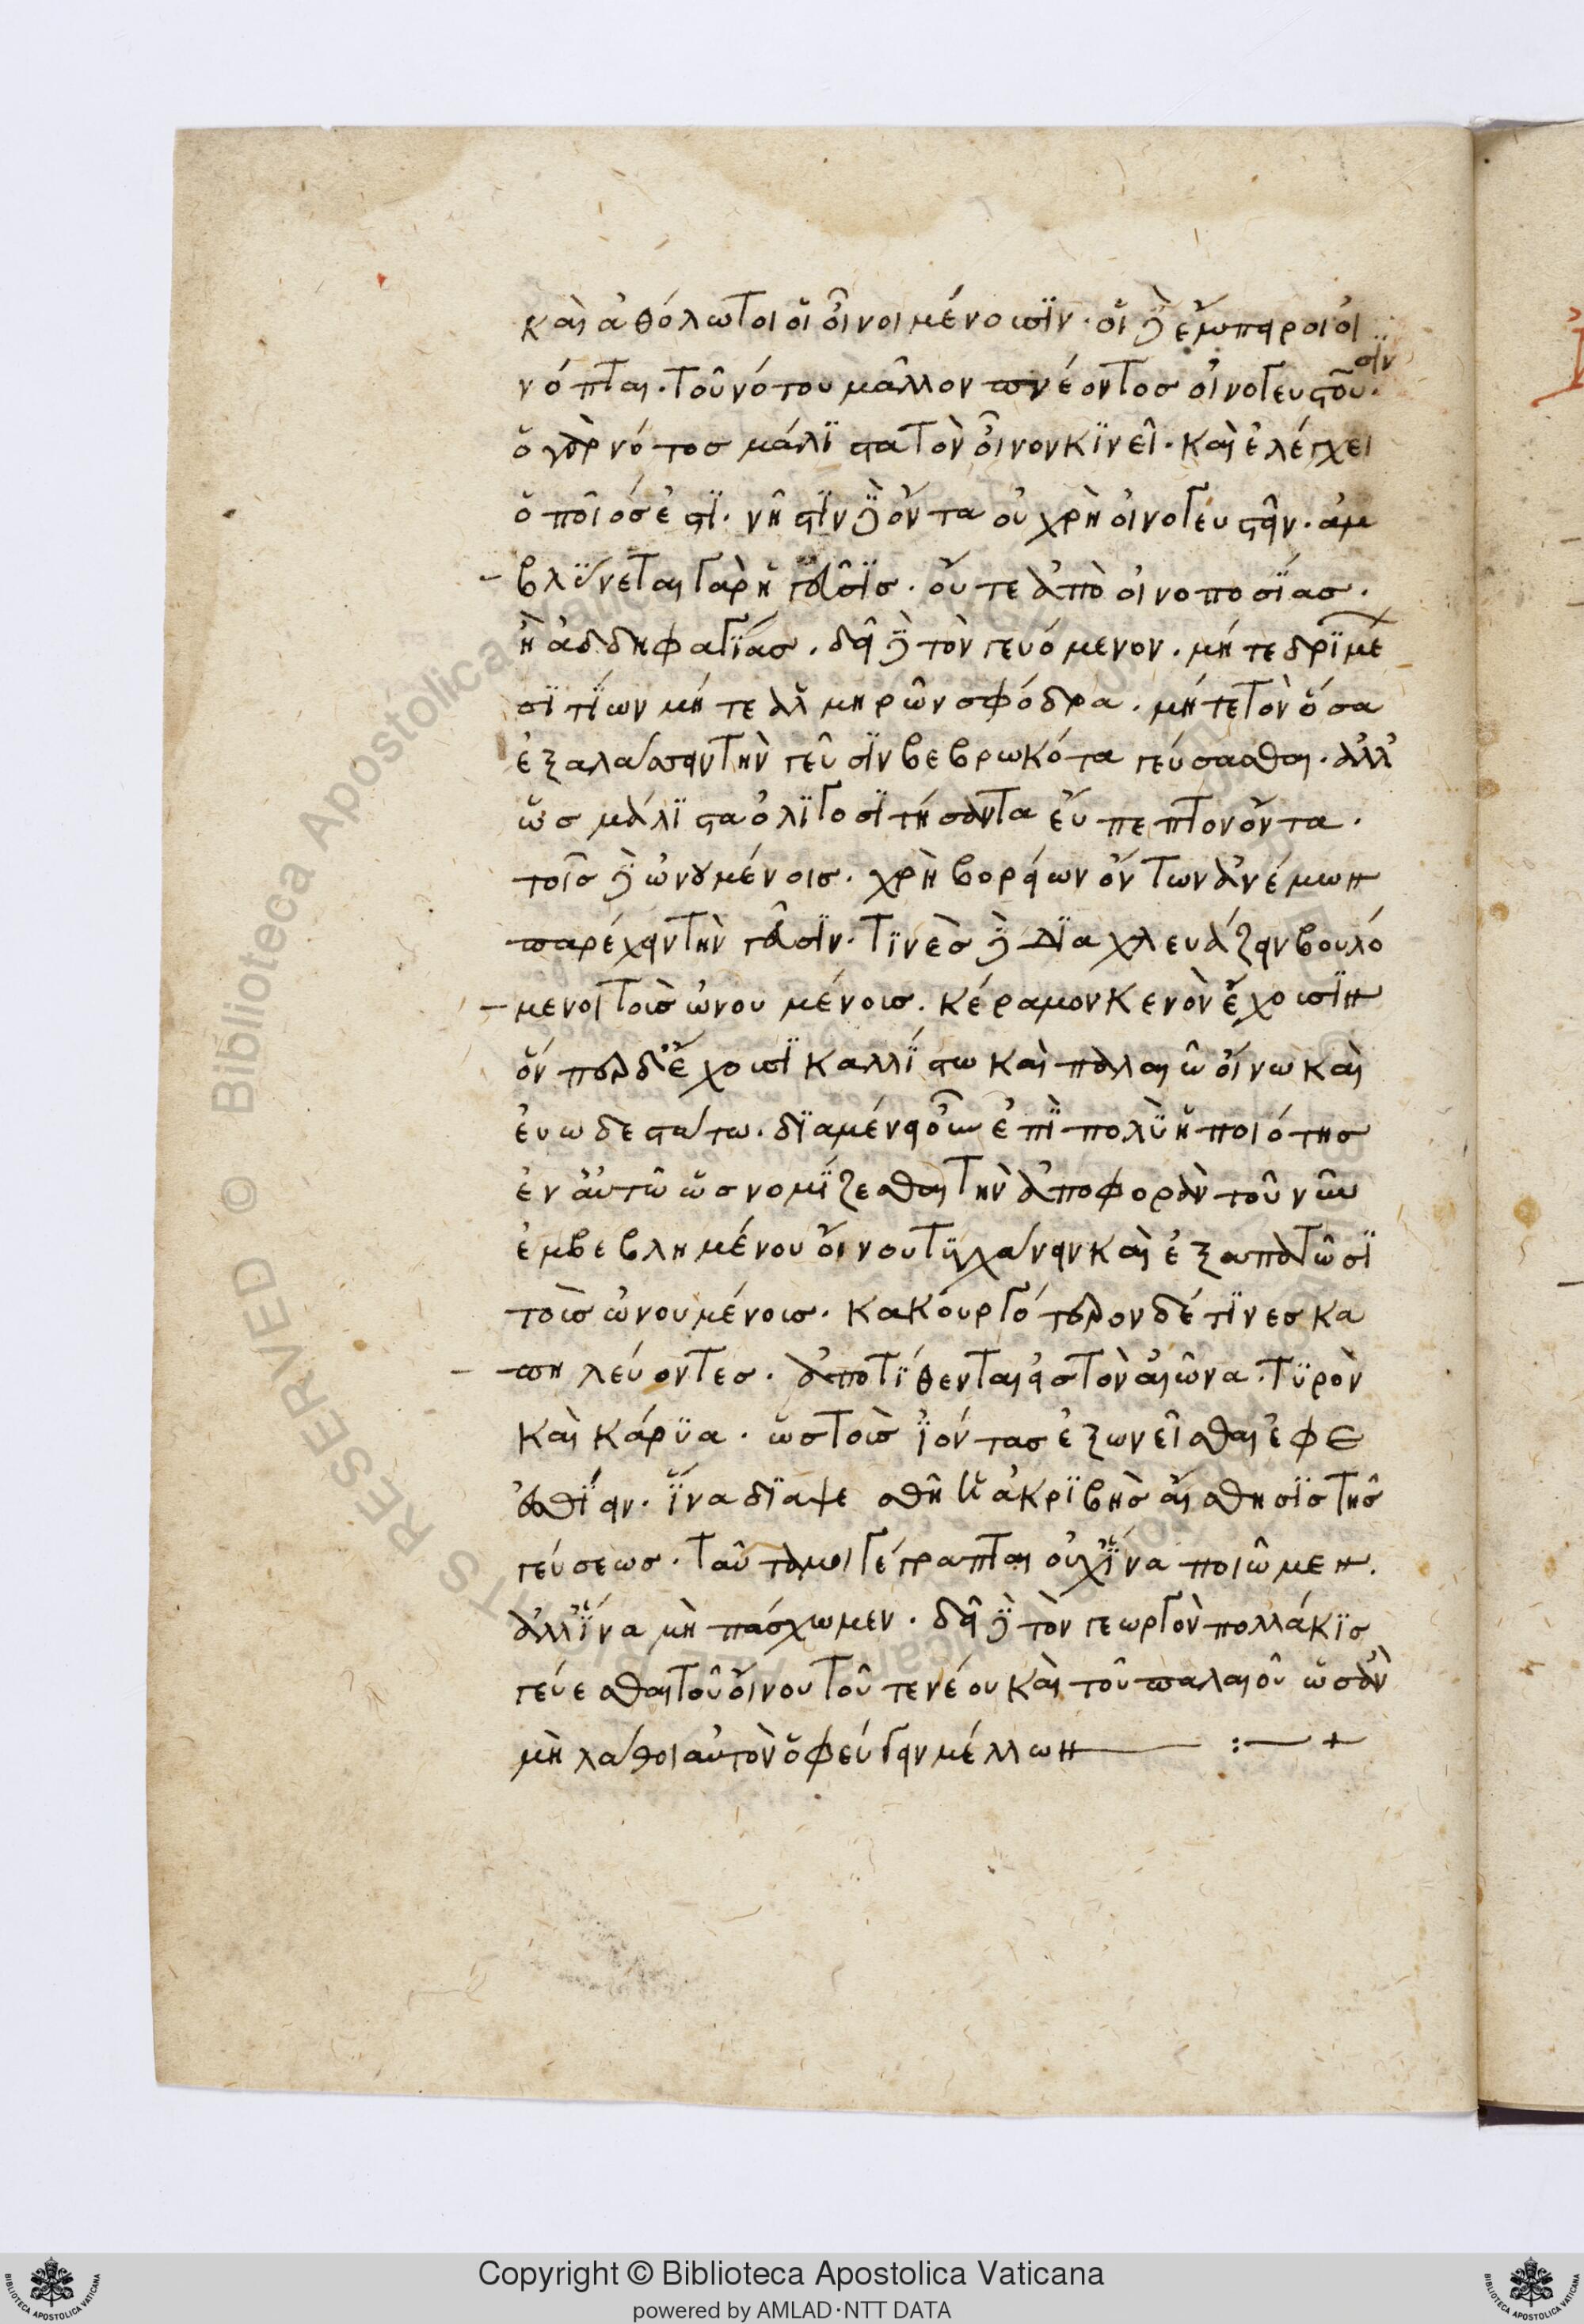 καὶ ἀθόλωτοι οἱ οἶνοι μένουσϊν· οἱ δὲ ἔμπειροι οἰ
νόπται· τοῦ νότου μᾶλλον πνέοντοσ οἰνογευστοῦσϊν·
ὁ γὰρ νότοσ μάλϊστα τὸν οἶνον κϊνεῖ· καὶ ἐλέγχει
ὁποῖόσ ἐστϊ· νῆστϊν δὲ ὄντα οὐ χρὴ οἰνογευστεῖν· ἀμ
βλΰνεται γὰρ ἡ γεῦσϊσ· οὔτε ἀπὸ οἰνοποσΐασ·
ἢ ἀδδηφαγΐασ· δεῖ δὲ τὸν γευόμενον· μήτε δρϊμέ
σϊτΐων μήτε ἁλμηρῶν σφόδρα· μήτε τὸν ὅσα
ἐξαλλάσσειν τὴν γεῦσϊν βεβρωκότα γεύσασθαι· ἀλλ'
ὡσ μάλϊστα ὀλϊγοσϊτήσαντα εὔπεπτον ὄντα·
τοῖσ δὲ ὠνουμένοισ· χρὴ βορείων ὄντων ἀνέμων
παρέχειν τὴν γεῦσϊν· τϊνὲσ δὲ δϊαχλευάζειν βουλό
μενοι τοῖσ ὠνουμένοισ· κέραμον κενὸν ἔχουσϊν
ὅνπερ δ' ἔχουσϊ καλλΐστω καὶ παλαιῶ οἴνω καὶ
ἐυωδεστάτω· δϊαμένει οὖν ἐπὶ πολῢ ἡ ποιότησ
ἐν ἀυτῶ ὡσ νομΐζεσθαι τὴν ἀποφορὰν τοῦ νῦν
ἐμβεβλημένου οἴνου τϋγχάνειν καὶ ἐξαπατῶσϊ
τοῖσ ὠνουμένοισ· κακουργότερον δέ τϊνεσ κα
πηλεύοντεσ· ἀποτΐθενται εἰσ τὸν αἰῶνα· τϋρὸν
καὶ κάρϋα· ὡσ τοῖσ ϊόντασ ἐξωνεῖσθαι ἐφε
ἐσθΐειν· ΐνα δϊαψεσθῆ ἡ ἀκρϊβὴσ αἴσθησϊσ τῆσ
γεύσεωσ· ταῦτα μοι γέγραπται οὐχ ΐνα ποιῶμεν·
ἀλλ' ΐνα μὴ πάσχωμεν· δεῖ δὲ τὸν γεωργὸν πολλάκϊσ
γεύεσθαι τοῦ οἴνου τοῦ τε νέου καὶ τοῦ παλαιοῦ ὡσ ἂν
μὴ λάθοι αὐτὸν ὁ φεύγειν μέλλων :— +
Copyright © Biblioteca Apostolica Vaticana
powered by AMLAD·NTT DATA